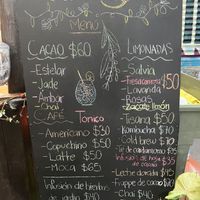 Menú
CACAO $60
-Estelar
-Jade
-Ambar
-Chai
CAFÉ
Tonico
-Americano $30
-Capuchino $50
-Latte $50
-Moca $65
Infusión de hierbas
$40
LIMONADAS
-Salvia
-Fresa $50
-Lavanda
-Rosas
-Zacate limón
-Tisana $50
-Kombucha $70
-Cold brew $70
-Té de $35
Infusión de hoja de $35
cacao
-Leche dorada $45
-Frappe de cacao $70
-Chai $46